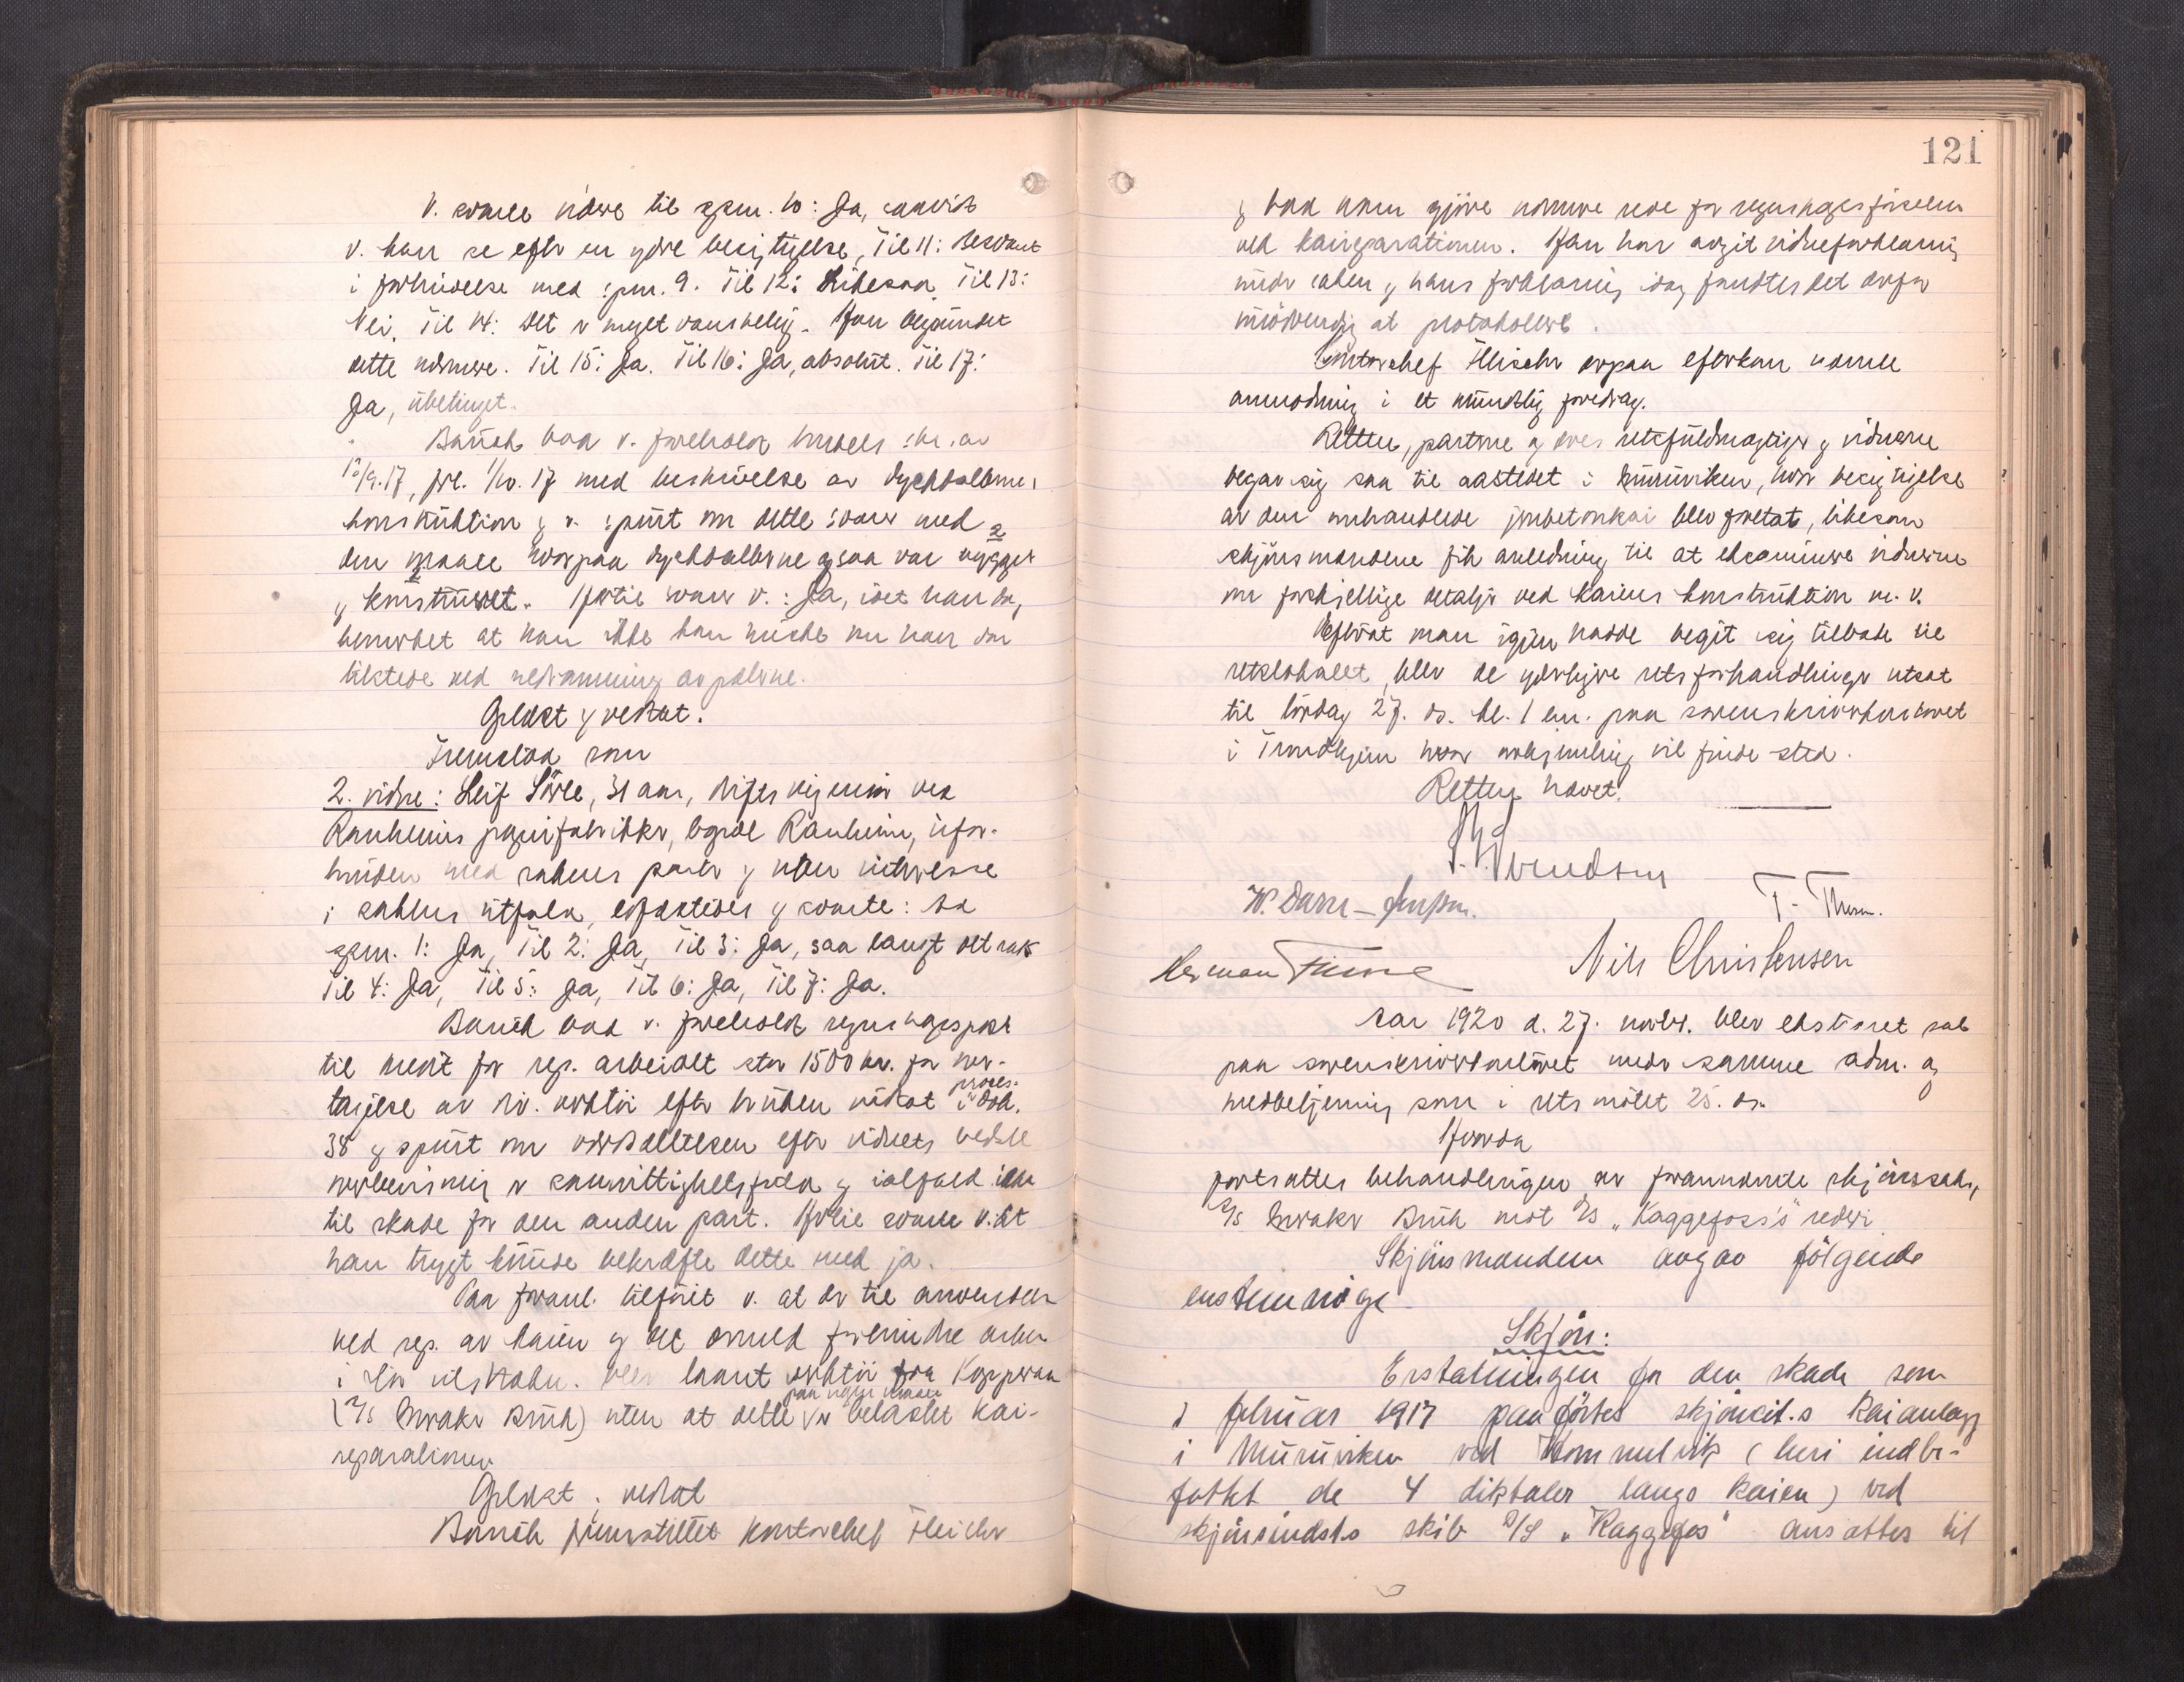 V. svarte videre til spm. 10: Ja, saavidt
v. kan se efter en ydre besigtigelse, Til 11: Besvaret
i forbindelse med spm. 9. Til 12: Likesaa, Til 13:
Nei, Til 14: Det er meget vanskelig. Han begrundet
dette nærmere. Til 15: Ja. Til 16: Ja, absolut. Til 17:
Ja, ubetinget.
Bauck bad v. foreholdt av
12/9.17, frl. 1/10. 17 med beskrivelse av dychdalbernes
konstruktion og v. spurt om dette svarer med
den maate hvorpaa dychdalberne ogsaa var bygget
og konstrueret. Hertil svarer v.: Ja, idet han dog
bemerket at han ikke kan huske om han var
tilstede ved nedramming av pælerne.
Oplæst og vedtat.
Fremstod som
2. vidne: Leif Sørle, 31 aar, driftsingeniør ved
Ranheims papirfabrikker, bopæl Ranheim, ufor-
bunden med sakens parter og uten interesse
i sakens utfald, edfæstedes og svarte: Paa
spm. 1: Ja, Til 2: Ja, Til 3: Ja, saa langt det rak
Til 4: Ja, Til 5: Ja, Til 6: Ja, Til 7: Ja.
Bauck bad v. foreholdt regnskapspost
til kredit for rep. arbeidet stor 1500 kr. for over-
tagelse av div. verktøi efter bruken uttat i proces. dok.
38 og spurt om værdsættelsen efter vidnets bedste
overbevisning er samvittighetsfuld og ialfald ikke
til skade for den anden part. Hertil svarte v. at
han trygt kunde bekræfte dette med ja.
Paa foranl. tilføiet v. at der til anvendelse
ved rep. av kaien og det dermed forbundne arbeide
i stor utstrækn. blev laant verktøi fra Kopperaa
(A/S Meraker Bruk) uten at dette paa nogen maate er belastet kai-
reparationen
Oplæst, vedtat
Bauck fremstillet kontorchef Fleischer
121
og bad ham gjøre nærmere rede for regnskapsførselen
ved kaireparationen. Han har avgit vidneforklaring
under saken og hans forklaring idag fandtes det derfor
unødvendig at protokollere.
Kontorchef Fleischer derpaa efterkom nævnte
anmodning i et mundtlig foredrag.
Retten, parterne og deres retsfuldmægtiger og vidnerne
begav sig saa til aastedet i Muruviken, hvor besigtigelse
av den omhandlede jernbetonkai blev foretat, likesom
skjønsmændene fik anledning til at eksaminere vidnerne
om forskjellige detaljer ved kaiens konstruktion m. v.
Efterat man igjen hadde begit sig tilbake til
retslokalet, blev de yderligere retsforhandlinger utsat
til lørdag 27. ds. kl. 1 em. paa sorenskriverkontoret
i Trondhjem hvor avhjemling vil finde sted.
Retten hævet.
Herman
Nils Christensen
Aar 1920 d. 27. novbr. blev ekstraret sat
paa sorenskriverkontoret under samme adm. og
medbetjening som i retsmøtet 25. ds.
Hvorda
fortsattes behandlingen av forannævnte skjønssak,
A/S Meraker Bruk mot D/S „Kaggefoss's" rederi
Skjønsmændene avgav følgende
enstemmige
Skjøn:
Erstatningen for den skade som
i februar 1917 paaførtes skjønscit.s kaianlæg
i Muruviken ved Hommelvik (heri indbe-
fattet de 4 dikdaler langs kaien) ved
skjønsindst.s skib D/S „Kaggefos" ansættes til